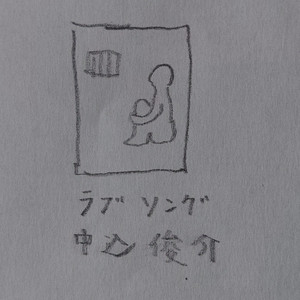 ラブ ソング
中込 俊介